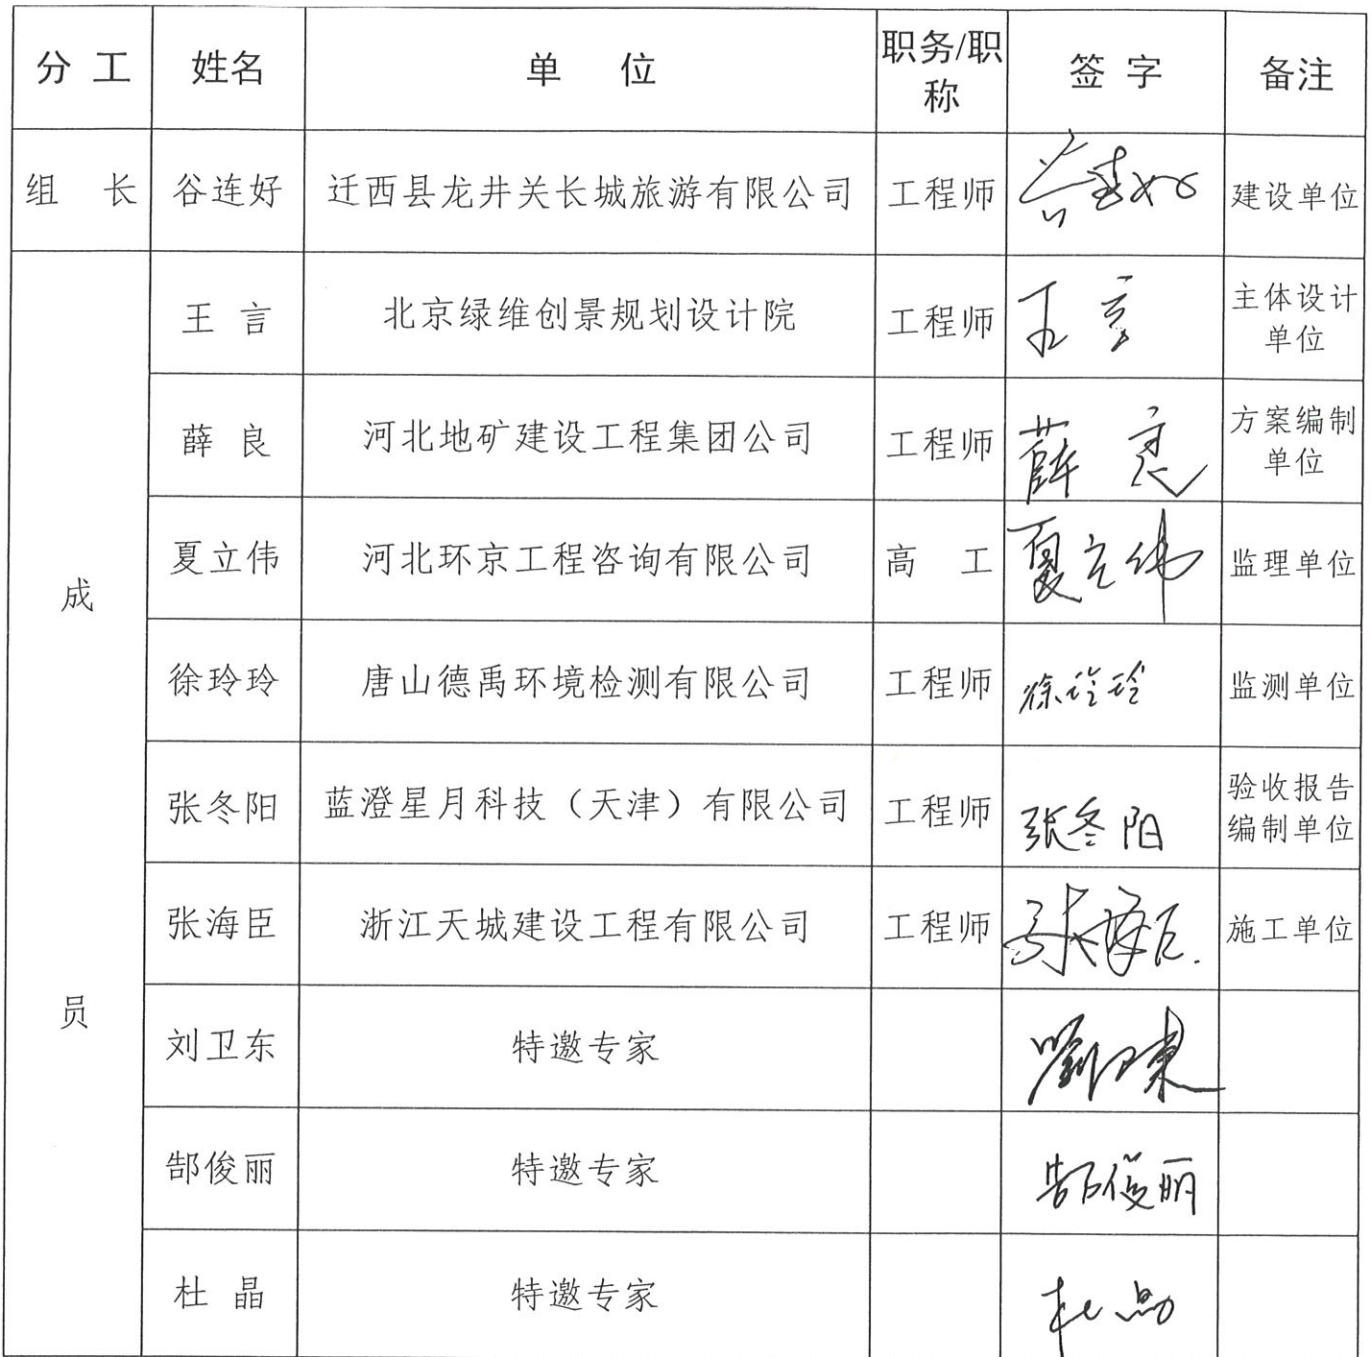 分 工 姓名 单 位 职务/职称 签 字 备注
组 长 谷连好 迁西县龙井关长城旅游有限公司 工程师 谷连好 建设单位
成员
王 言 北京绿维创景规划设计院 工程师 王言 主体设计单位
薛 良 河北地矿建设工程集团公司 工程师 薛良 方案编制单位
夏立伟 河北环京工程咨询有限公司 高 工 夏立伟 监理单位
徐玲玲 唐山德禹环境检测有限公司 工程师 徐玲玲 监测单位
张冬阳 蓝澄星月科技（天津）有限公司 工程师 张冬阳 验收报告编制单位
张海臣 浙江天城建设工程有限公司 工程师 张海臣 施工单位
刘卫东 特邀专家 劉卫東
郜俊丽 特邀专家 郜俊丽
杜 晶 特邀专家 杜晶